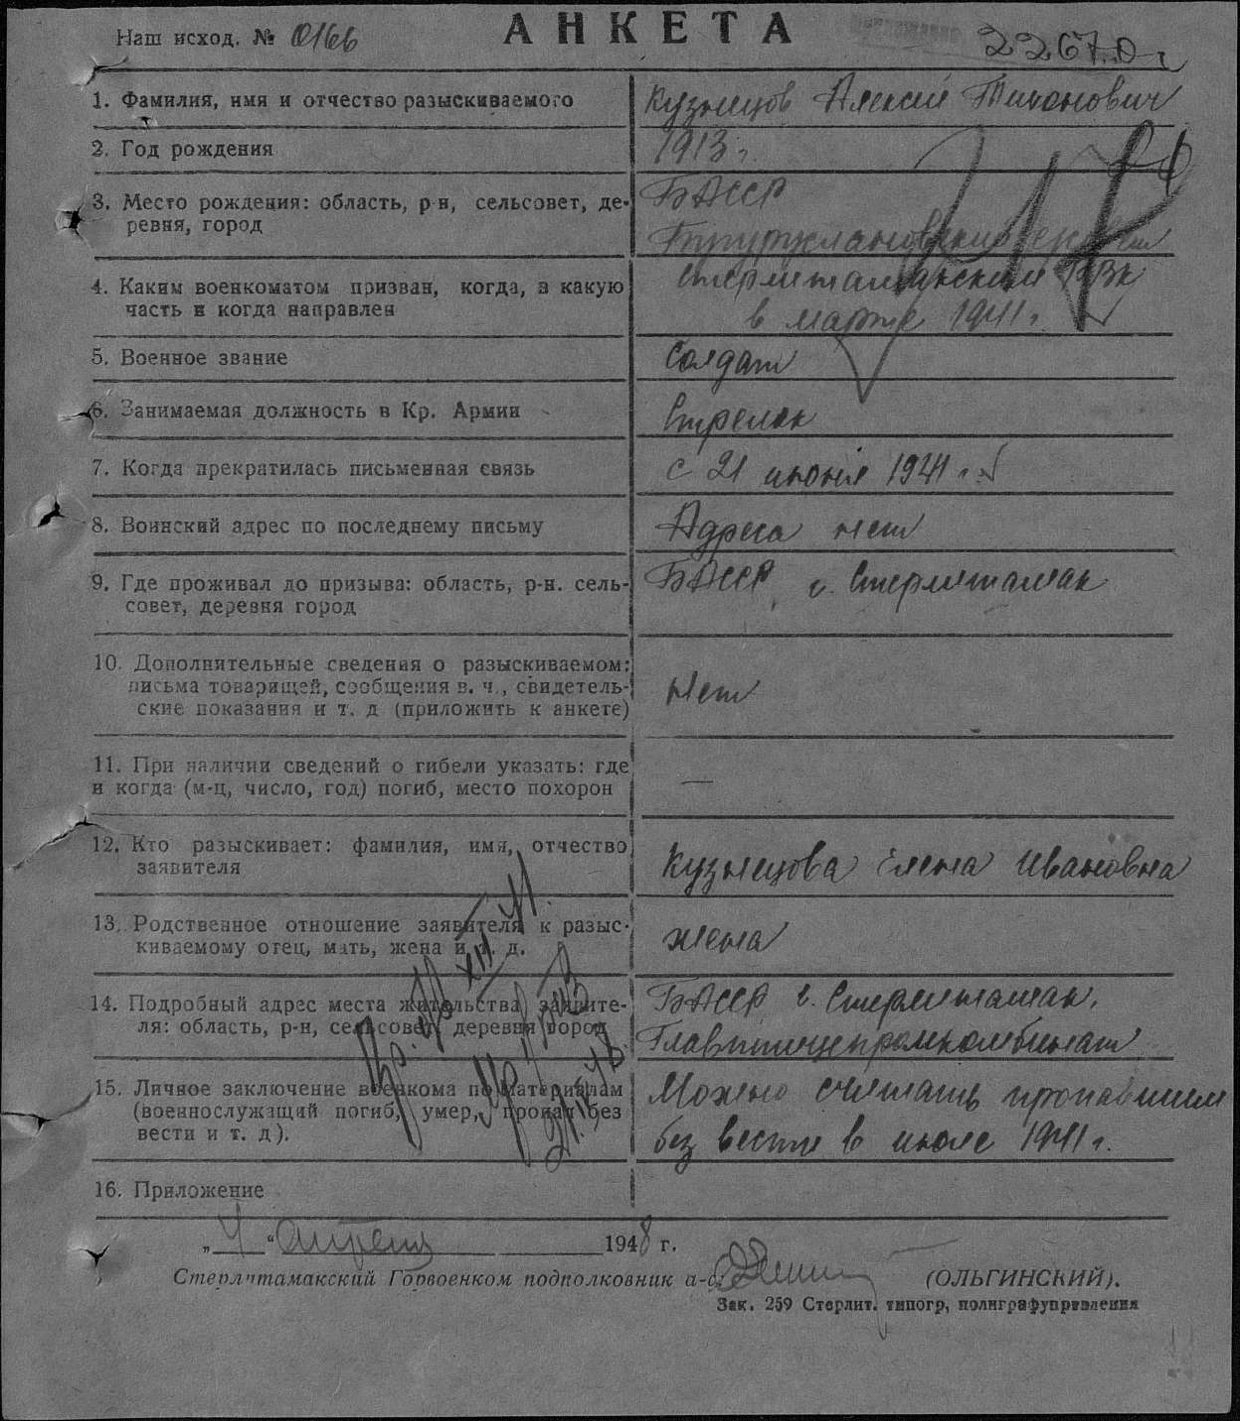 АНКЕТА
Наш исход. № 0166
22670
1. Фамилия, имя и отчество разыскиваемого
Кузнецов Алексей Тихонович
2. Год рождения
1913 г.
3. Место рождения: область, р-н, сельсовет, де-
ревня, город
БАССР
4. Каким военкоматом призван, когда, в какую
часть и когда направлен
Стерлитамакским РВК
в марте 1941 г.
5. Военное звание
Солдат
6. Занимаемая должность в Кр. Армии
Стрелок
7. Когда прекратилась письменная связь
с 21 июня 1941 г.
8. Воинский адрес по последнему письму
Адреса нет
9. Где проживал до призыва: область, р-н. сель-
совет, деревня город
БАССР г. Стерлитамак
10. Дополнительные сведения о разыскиваемом:
письма товарищей, сообщения в. ч., свидетель-
ские показания и т. д (приложить к анкете)
Нет
11. При наличии сведений о гибели указать: где
и когда (м-ц, число, год) погиб, место похорон
—
12. Кто разыскивает: фамилия, имя, отчество
заявителя
Кузнецова Елена Ивановна
13. Родственное отношение заявителя к разыс-
киваемому отец, мать, жена и т. д.
жена
14. Подробный адрес места жительства заявите-
ля: область, р-н, сельсовет, деревня город
БАССР г. Стерлитамак,
Главптицепромкомбинат
15. Личное заключение военкома по материалам
(военнослужащий погиб, умер, пропал без
вести и т. д).
Можно считать пропавшим
без вести в июле 1941 г.
16. Приложение
„4“ апреля 1948 г.
Стерлитамакский Горвоенком подполковник а-с. (ОЛЬГИНСКИЙ).
Зак. 259 Стерлит. типогр, полиграфуправления